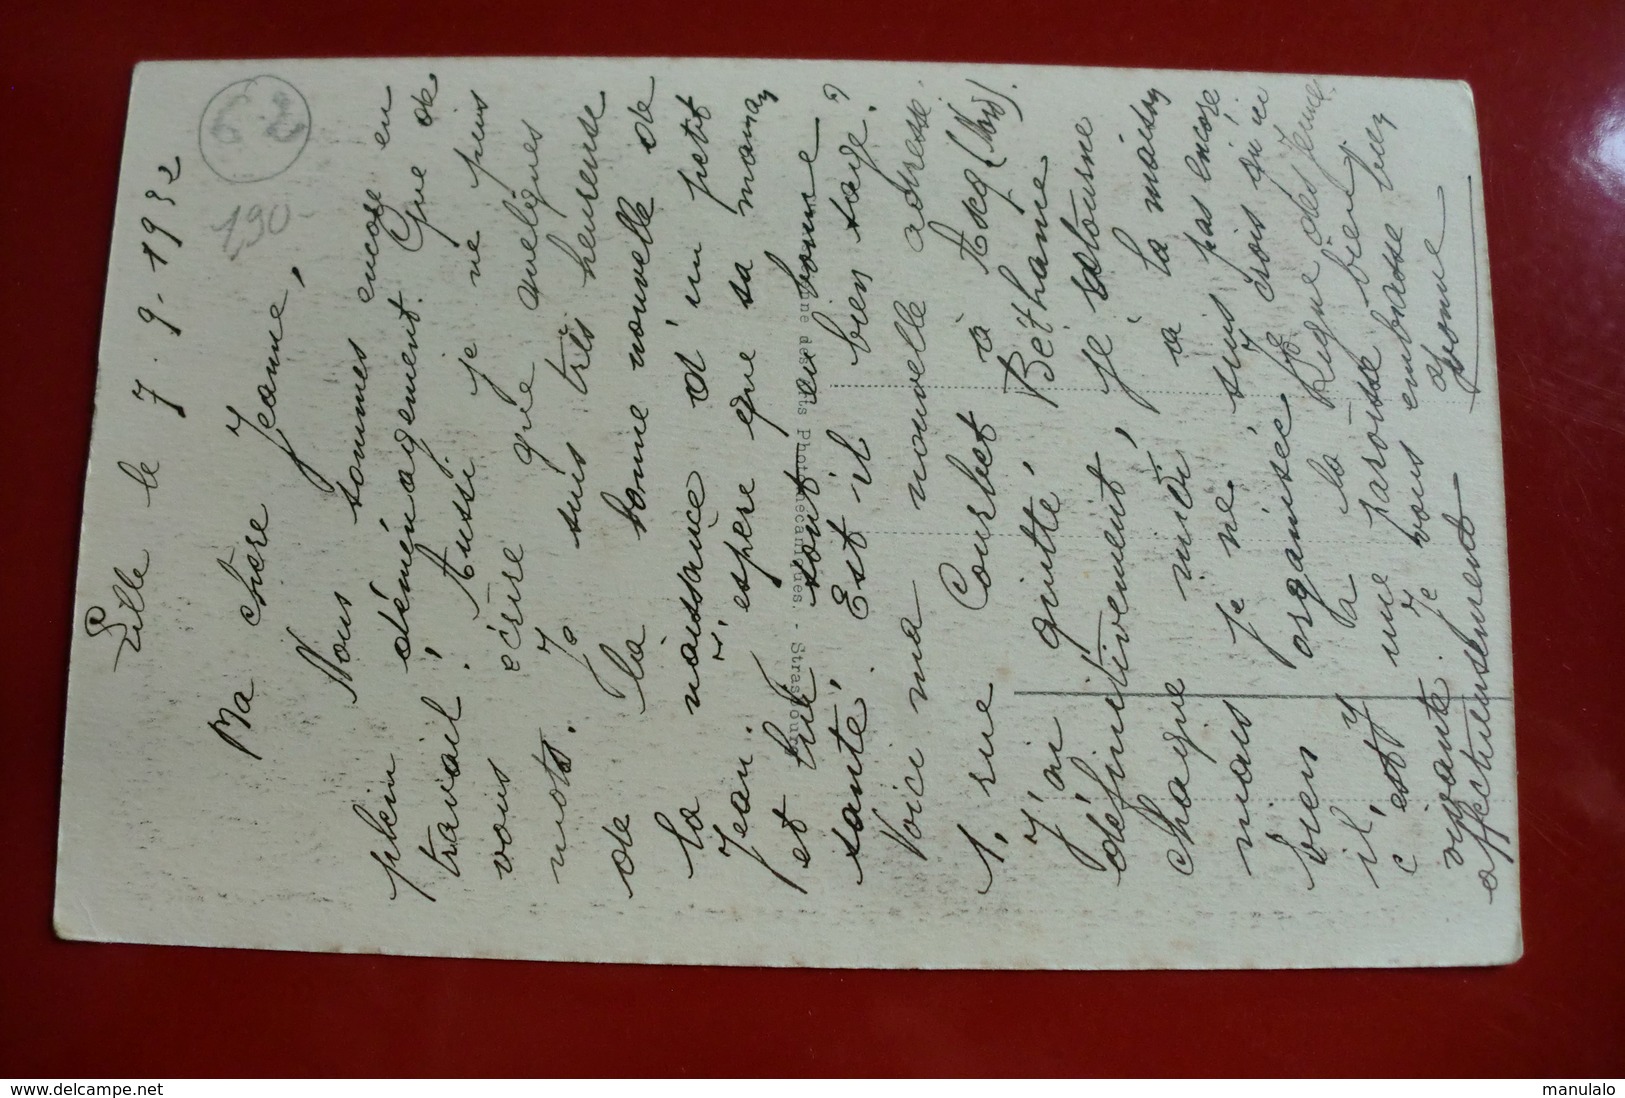 Lille le 7.9.1932
Ma chère Jeanne,
Nous sommes encore en
plein déménagement. Que de
travail! Aussi je ne puis
vous écrire que quelques
mots. Je suis très heureuse
de la bonne nouvelle de
la naissance d'un petit
Jean. J'espère que sa maman
et lui sont en bonne
santé. Est-il bien sage?
Voici ma nouvelle adresse.
1, rue Courbet à Ascq (Nord).
J'ai quitté Béthanie
définitivement, je retourne
chaque midi à la maison
mais je ne suis pas encore
bien organisée. Je crois qu'ici
il y a la Ligue des femmes
c'est une paroisse bien
vivante. Je vous embrasse bien
affectueusement
Yvonne
Photomécaniques. - Strasbourg
62
190-
www.delcampe.net
manulalo